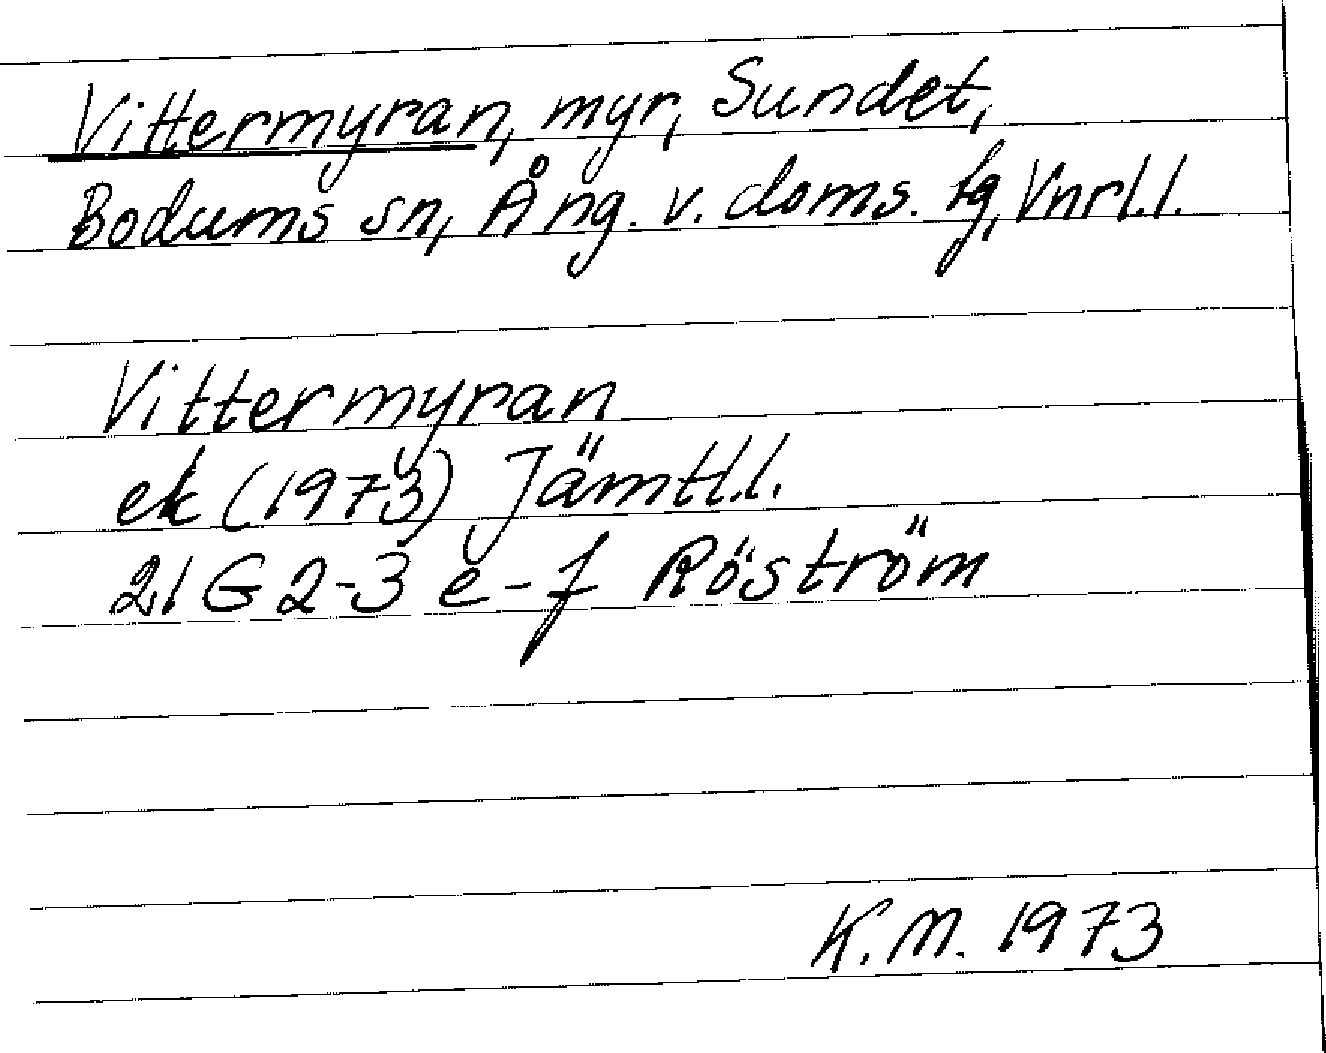 Vittermyran, myr, Sundet,
Bodums sn, Ång. v. doms. fg, Vnrl.l.
Vittermyran
ek (1973) Jämtl.l.
21 G 2-3 e-f Röström
K.M. 1973